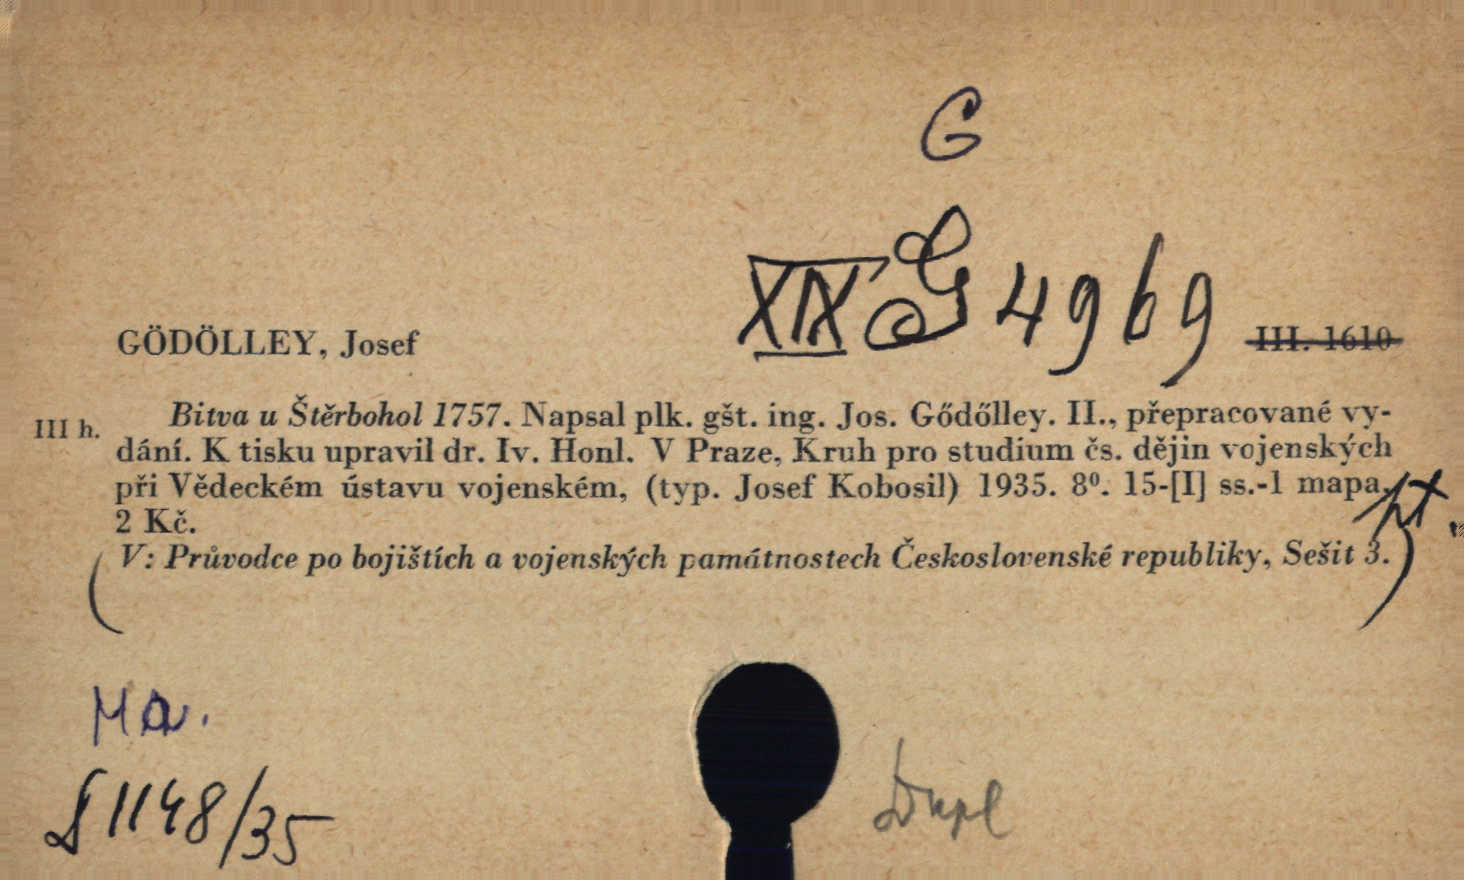 G
XIX G 4969
GÖDÖLLEY, Josef
III. 1610
III h.
Bitva u Štěrbohol 1757. Napsal plk. gšt. ing. Jos. Gődőlley. II., přepracované vy-
dání. K tisku upravil dr. Iv. Honl. V Praze, Kruh pro studium čs. dějin vojenských
při Vědeckém ústavu vojenském, (typ. Josef Kobosil) 1935. 8⁰. 15-[I] ss.-1 mapa.
2 Kč.
(V: Průvodce po bojištích a vojenských památnostech Československé republiky, Sešit 3.)
Ma.
1148/35
Dupl